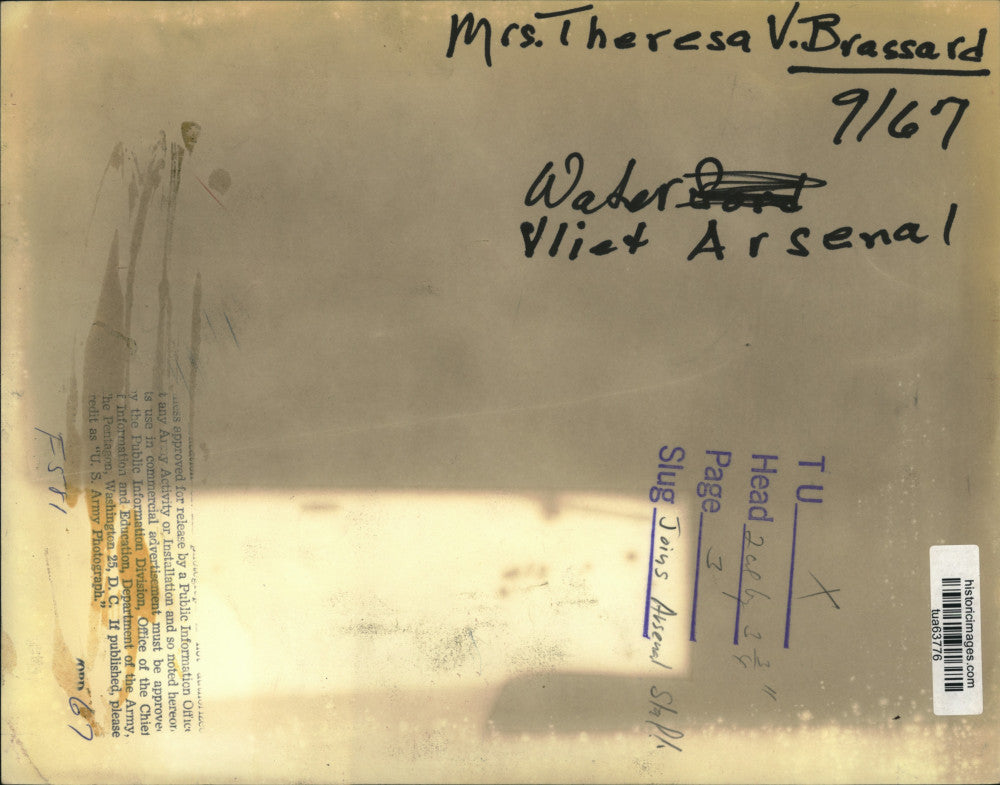 Mrs. Theresa V. Brassard
9/67
Water
Vliet Arsenal
TU X
Head 2 col by 3 3/8"
Page 3
Slug Joins Arsenal Staff.
ness approved for release by a Public Information Office
t any Army Activity or Installation and so noted hereon,
ts use in commercial advertisement must be approved
y the Public Information Division, Office of the Chief
f Information and Education, Department of the Army,
he Pentagon, Washington 25, D. C. If published, please
redit as "U. S. Army Photograph."
F581
67
historicimages.com
tua63776